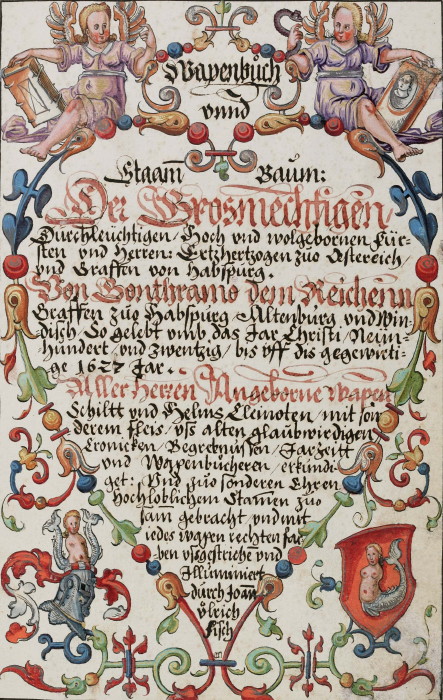 Wapenbuͦch
vnnd
Staam̃ Baum:
Der Grosmechtigen
Durchleuchtigen Hoch vnd wolgebornen Für-
sten vnd Herren: Ertzhertzogen zuo Ostereich
vnd Graffen von Habspurg.
Von Gonthramo dem Reichenn
Graffen zuo Habspurg Altenburg vnd Win-
disch So gelebt vmb das Jar Christi / Neun-
hundert vnd zwentzig / bis vff dis gegenwerti-
ge 1622 Jar.
Aller Herren Angeborne Wapen
Schiltt vnd Helms Cleinoten / mit son
derem fleis / vss alten glaubwirdigen
Cronicken / Begrebnussen / Jarzeitt
vnd Wapenbücheren / erkundi-
get: Vnd zuo sonderen Ehren
Hochloblichem Stamen zuo
sam̃ gebracht vnd mit
iedes wapen rechten far
ben vsgestriche vnd
Illuminiert
durch Joan̄
Vͦlreich
Fisch